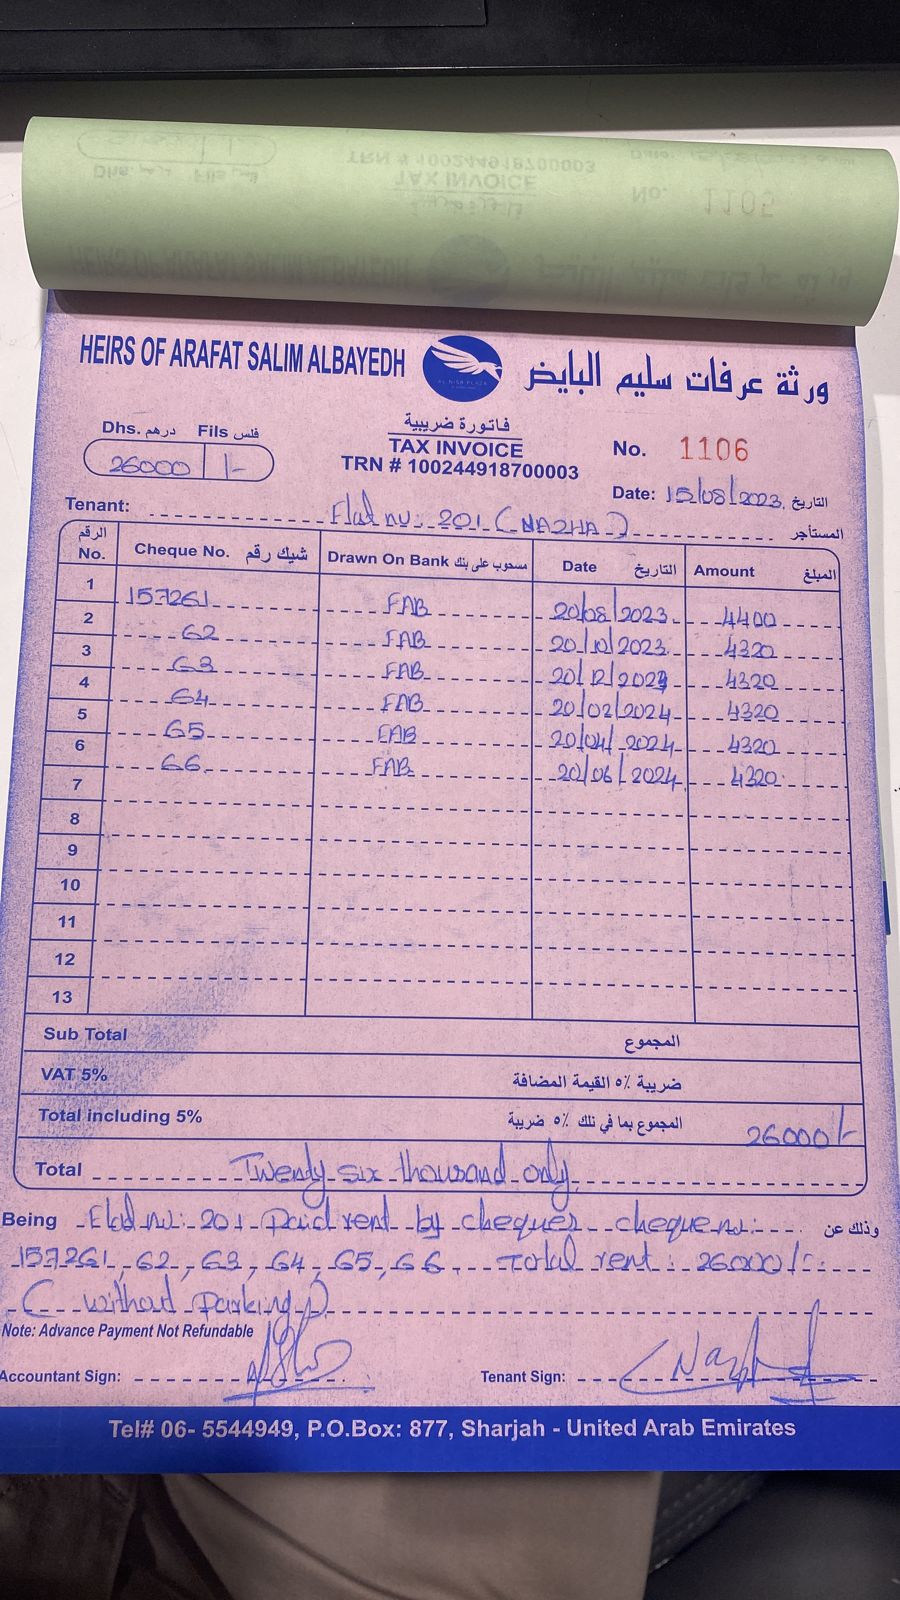 HEIRS OF ARAFAT SALIM ALBAYEDH
ورثة عرفات سليم البايض
Dhs. درهم Fils فلس
26000 /-
فاتورة ضريبية
TAX INVOICE
TRN # 100244918700003
No. 1106
Date: 15/08/2023 التاريخ
Tenant: Flat nu: 201 (NAZHA) المستأجر
الرقم No. Cheque No. شيك رقم Drawn On Bank مسحوب على بنك Date التاريخ Amount المبلغ
1 157261 FAB 20/08/2023 4400
2 62 FAB 20/10/2023 4320
3 63 FAB 20/12/2023 4320
4 64 FAB 20/02/2024 4320
5 65 FAB 20/04/2024 4320
6 66 FAB 20/06/2024 4320
7
8
9
10
11
12
13
Sub Total المجموع
VAT 5% ضريبة ٥٪ القيمة المضافة
Total including 5% المجموع بما في تلك ٥٪ ضريبة 26000/-
Total Twenty six thousand only
Being Flat nu: 201 Paid rent by cheques cheque nu: وذلك عن
157261, 62, 63, 64, 65, 66 Total rent: 26000/-
( without parking )
Note: Advance Payment Not Refundable
Accountant Sign: Tenant Sign:
Tel# 06- 5544949, P.O.Box: 877, Sharjah - United Arab Emirates